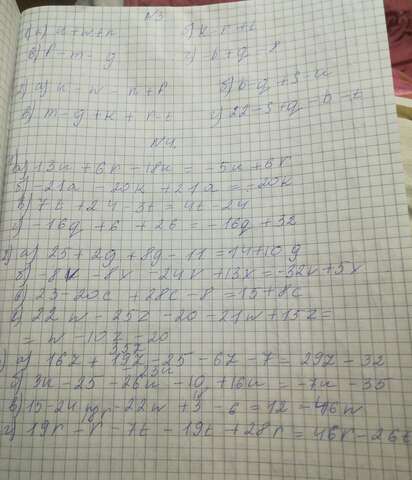 N3
1) а) x + w + n б) k - r + t
в) p - m - g г) - b + q - 8
2) а) n - w - n + p б) b - q + s - u
в) m - g + k + r - t г) 22 - s + q - b - t
N4.
а) 13u + 6r - 18u = -5u + 6r
б) -21a - 20k + 21a = -20k
в) 7t + 24 - 3t = 4t - 24
г) -16q + 6 + 26 = -16q + 32
2) а) 25 + 2g + 8g - 11 = 14 + 10g
б) -8v - 8x - 24v + 13x = -32v + 5x
в) 23 - 20c + 28c - 8 = 15 + 8c
г) 22w - 25z - 20 - 21w + 15z =
= w - 10z - 20
а) 16z + 19z - 25 - 6z - 7 = 29z - 32
б) 3u - 25 - 26u - 10 + 16u = -7u - 35
в) 15 - 24w - 22w + 3 - 6 = 12 - 46w
г) 19r - r - 7t - 19t + 28r = 46r - 26t